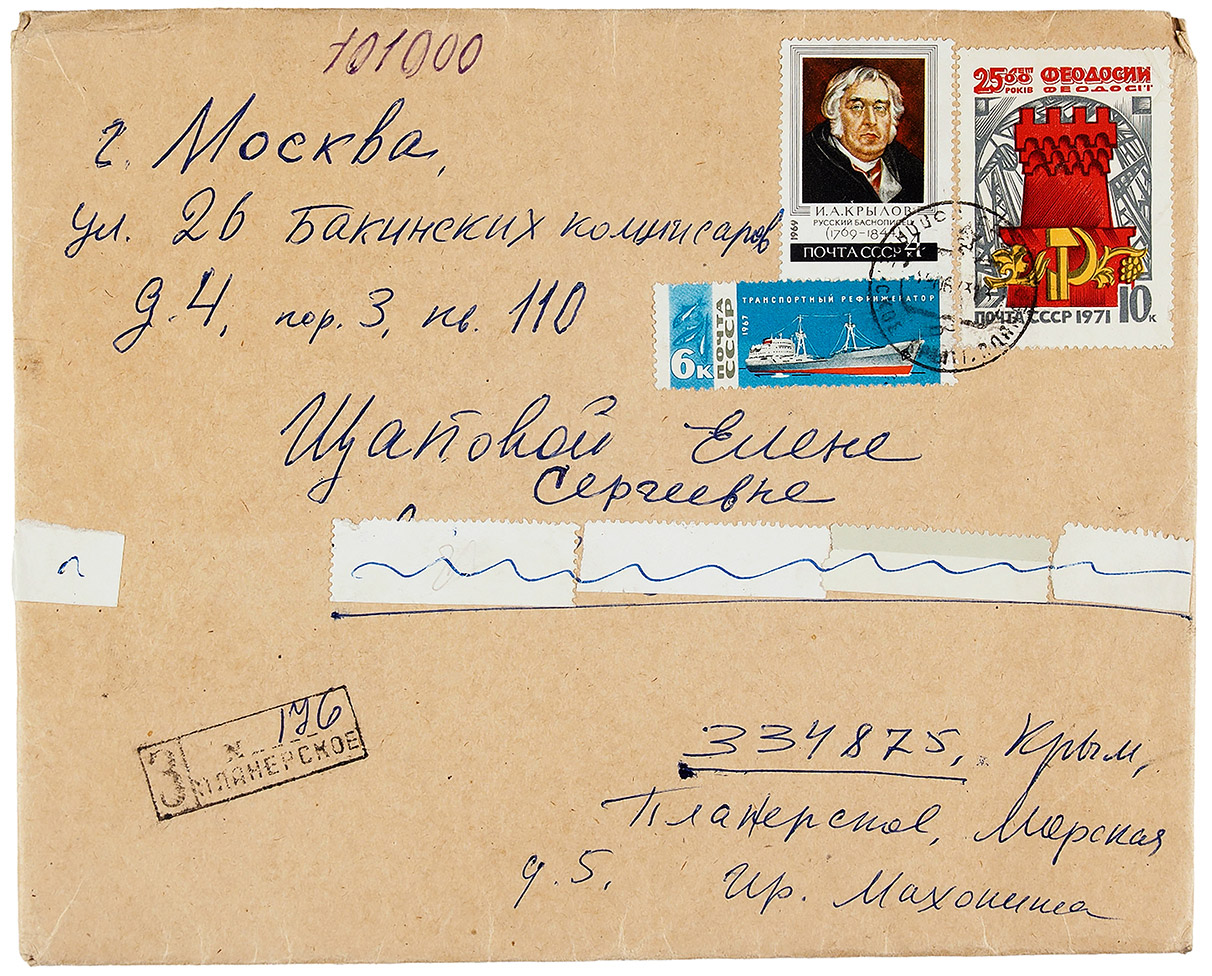 101000
г. Москва,
ул. 26 Бакинских комиссаров
д. 4, пор. 3, кв. 110
Щаповой Елене
Сергеевне
И.А.КРЫЛОВ
РУССКИЙ БАСНОПИСЕЦ
(1769–1844)
1969
ПОЧТА СССР 4 к
2500 ЛЕТ ФЕОДОСИИ
РОКІВ ФЕОДОСІЇ
ПОЧТА СССР 1971 10 к
ТРАНСПОРТНЫЙ РЕФРИЖЕРАТОР
6к ПОЧТА СССР 1967
З № 176
ПЛАНЕРСКОЕ
334875, Крым,
Планерское, Морская
д. 5. Ир. Махонина